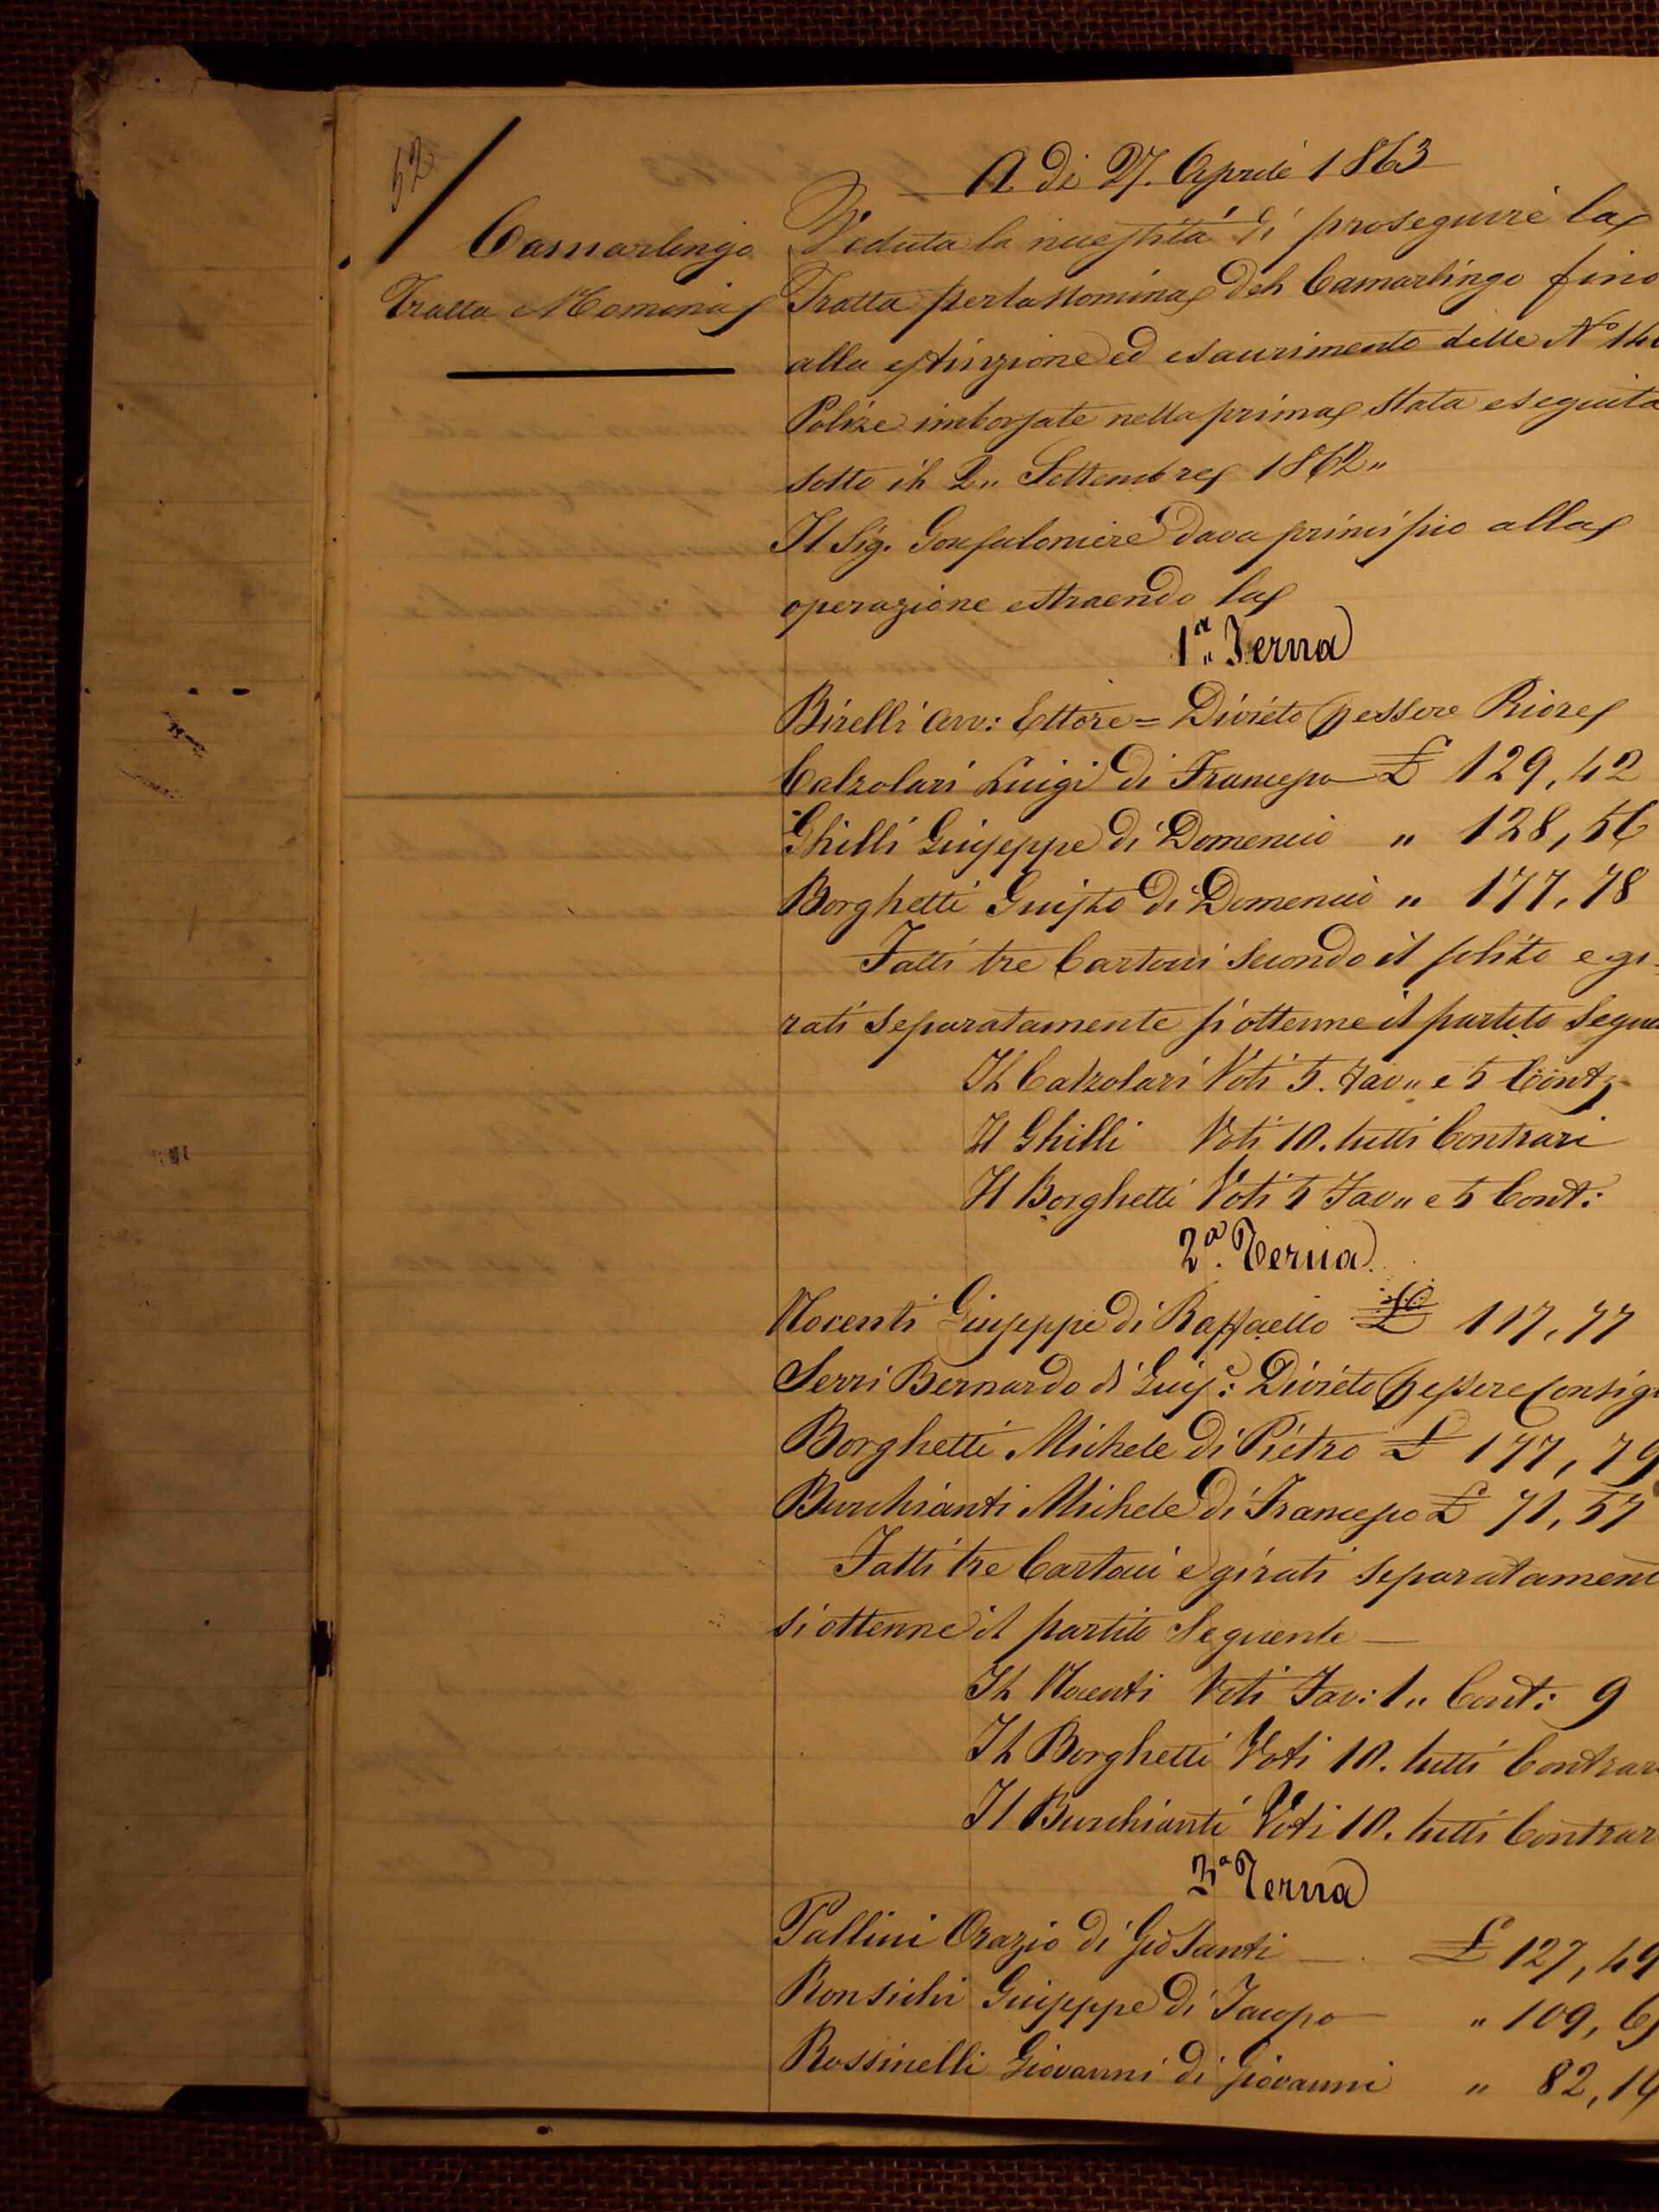 52
A dì 27. Aprile 1863
Camarlingo
Tratta e Nomina
Veduta la necessità di proseguire la
Tratta per la Nomina del Camarlingo fino
alla estinzione ed esaurimento delle N° 14
Polize imborsate nella prima stata eseguita
sotto il 2,, Settembre 1862,,
Il Sig. Gonfaloniere dava principio alla
operazione estraendo la
1.a Terna
Birelli Avv: Ettore = Divieto p essere Priore
Calzolari Luigi di Francesco £ 129,42
Ghilli Giuseppe di Domenico " 128,56
Borghetti Giusto di Domenico " 177,78
Fatti tre Cartocci secondo il solito e gi-
rati separatamente si ottenne il partito segue
Il Calzolari Voti 5. Fav,, e 5 Cont:
Il Ghilli Voti 10. tutti Contrari
Il Borghetti Voti 5 Fav,, e 5 Cont:
2a. Terna
Nocenti Giuseppe di Raffaello £ 117,77
Serri Bernardo di Gius: Divieto p essere Consig
Borghetti Michele di Pietro £ 177,79
Burchianti Michele di Francesco £ 71,57
Fatti tre Cartocci e girati separatament
si ottenne il partito seguente —
Il Nocenti Voti Fav: 1,, Cont: 9
Il Borghetti Voti 10. tutti Contrar
Il Burchianti Voti 10. tutti Contrar
3a Terna
Pallini Orazio di Gio Santi — £ 127,49
Ronsichi Giuseppe di Jacopo — " 109,6
Rossinelli Giovanni di Giovanni " 82,14